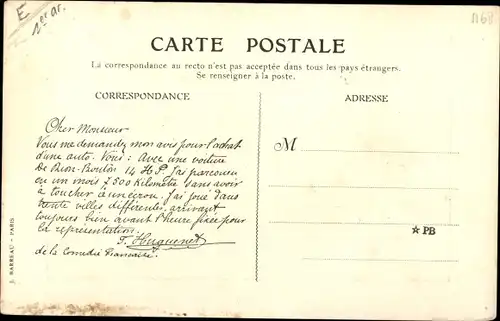 E
1er ar.
1168
CARTE POSTALE
La correspondance au recto n'est pas acceptée dans tous les pays étrangers.
Se renseigner à la poste.
CORRESPONDANCE
Cher Monsieur
Vous me demandez mon avis pour l'achat
d'une auto. Voici : Avec une voiture
De Dion-Bouton 14 HP. j'ai parcouru
en un mois 7500 kilomètre sans avoir
à toucher à un écrou. J'ai joué dans
trente villes différentes arrivant
toujours bien avant l'heure fixée pour
la représentation.
F. Huguenet
de la Comédie Française.
J. BARREAU - PARIS
ADRESSE
M
★ PB